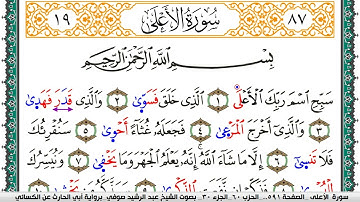 ١٩ سُورَةُ الأَعْلَى ٨٧
بِسْمِ اللَّهِ الرَّحْمَٰنِ الرَّحِيمِ
سَبِّحِ اسْمَ رَبِّكَ الْأَعْلَى ١ الَّذِي خَلَقَ فَسَوَّى ٢ وَالَّذِي قَدَرَ فَهَدَى
٣ وَالَّذِي أَخْرَجَ الْمَرْعَى ٤ فَجَعَلَهُ غُثَاءً أَحْوَى ٥ سَنُقْرِئُكَ
فَلَا تَنسَى ٦ إِلَّا مَا شَاءَ اللَّهُ إِنَّهُ يَعْلَمُ الْجَهْرَ وَمَا يَخْفَى ٧ وَنُيَسِّرُكَ
سورة الأعلى . الصفحة ٥٩١ . الحزب ٦٠ . الجزء ٣٠ . بصوت الشيخ عبد الرشيد صوفي . برواية أبي الحارث عن الكسائي